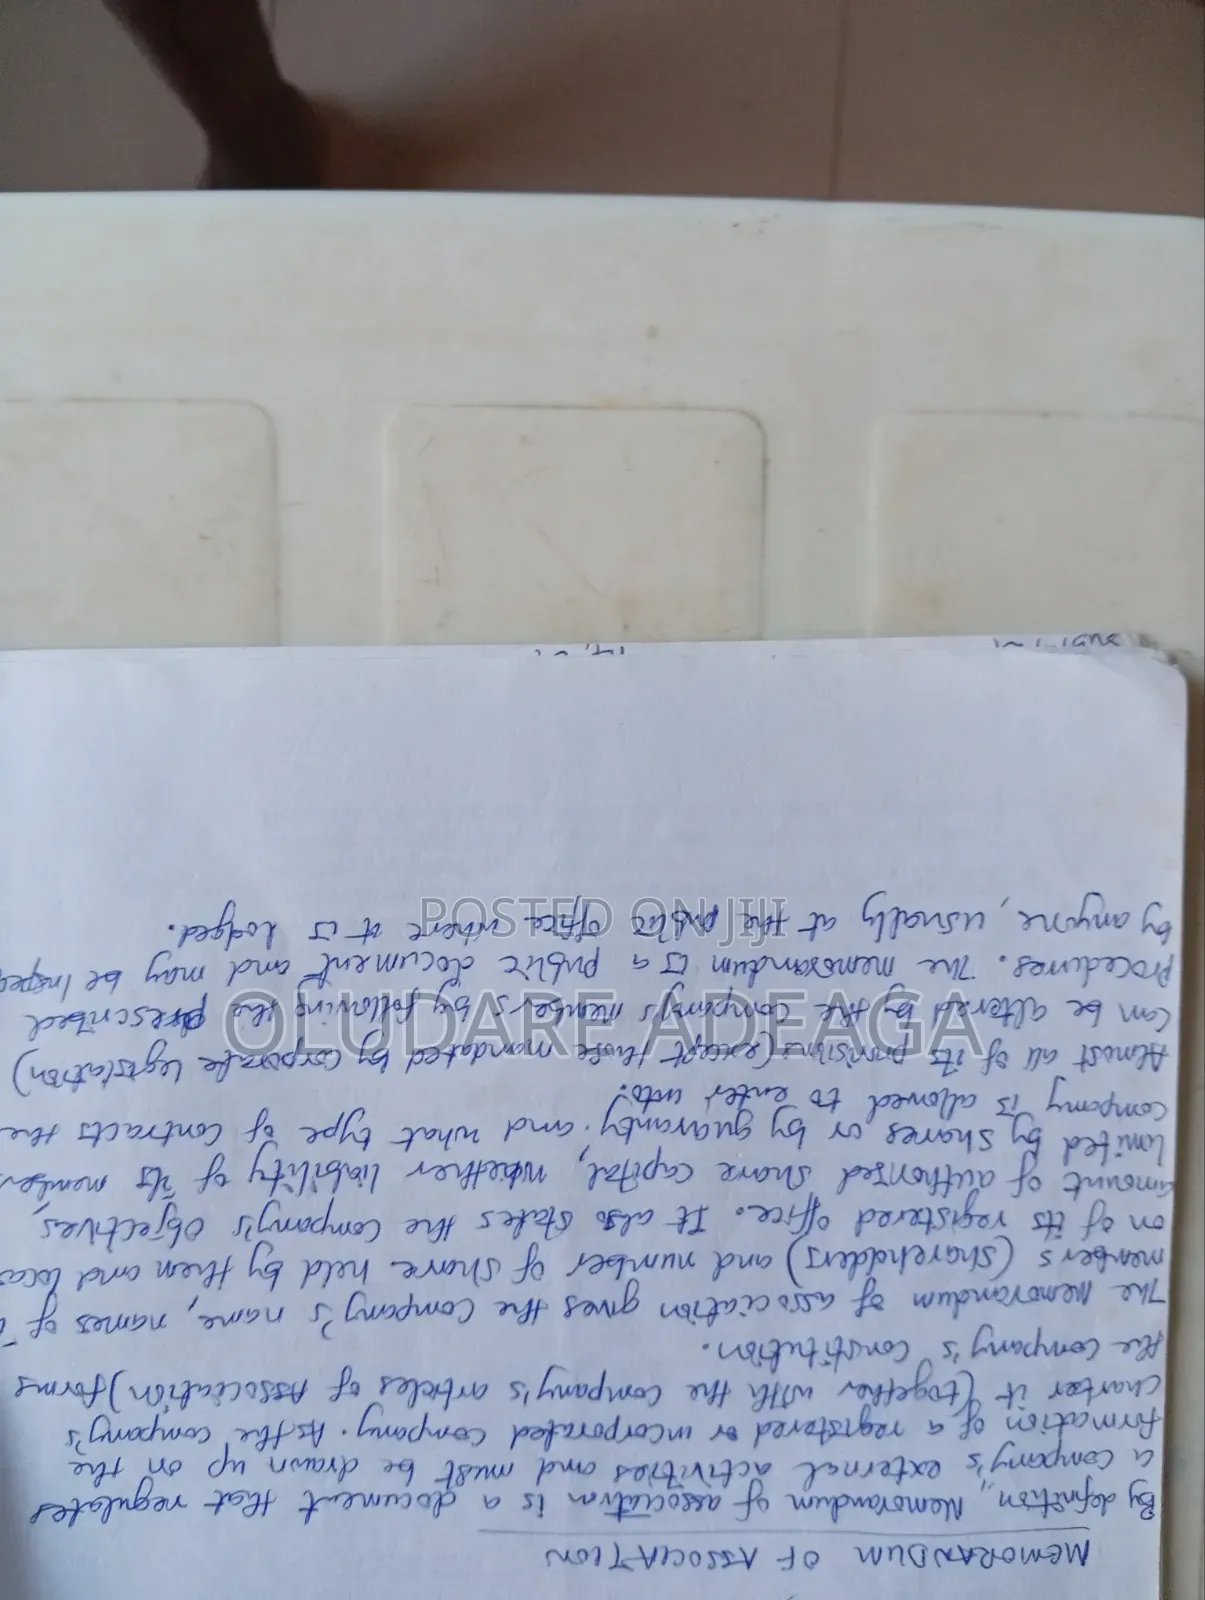 MEMORANDUM OF ASSOCIATION
By definition, Memorandum of association is a document that regulates
a company's external activities and must be drawn up on the
formation of a registered or incorporated company. As the company's
charter it (together with the company's articles of Association) forms
the company's constitution.
The memorandum of association gives the company's name, names of
members (shareholders) and number of share held by them and loca
on of its registered office. It also states the company's objectives,
amount of authorised share capital, whether liability of its members
limited by shares or by guaranty and what type of contracts the
company is allowed to enter into.
Almost all of its provisions (except those mandated by corporate legislation)
can be altered by the company's members by following the prescribed
procedures. The memorandum is a public document and may be inspec
by anyone, usually at the public office where it is lodged.
POSTED ON JIJI
OLUDARE ADEAGA